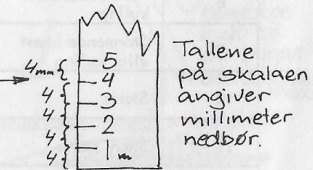 4mm
5
4
4
4
3
4
2
4
1 m
4
Tallene
på skalaen
angiver
millimeter
nedbør.